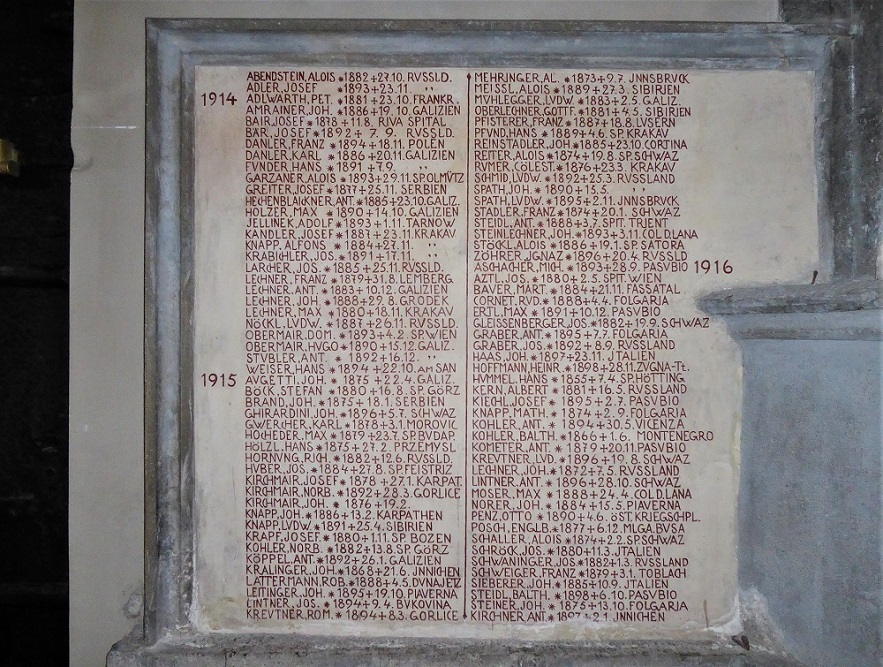 ABENDSTEIN, ALOIS *1882+27.10. RVSSLD.
ADLER, JOSEF *1893+23.11. "
1914 ADLWARTH, PET. *1881+23.10. FRANKR.
AMRAINER, JOH. *1886+19.10. GALIZIEN
BAIL, JOSEF *1878+11.8. RIVA SPITAL
BÄR, JOSEF *1892+7.9. RVSSLD.
DANLER, FRANZ *1894+18.11. POLEN
DANLER, KARL *1886+20.11. GALIZIEN
FVNDER, HANS *1891+7.9. "
GARZANER, ALOIS *1893+29.11. SP. OLMVTZ
GREITER, JOSEF *1877+25.11. SERBIEN
HECHENBLAICKNER, ANT. *1885+23.10. GALIZ.
HOLZER, MAX *1890+14.10. GALIZIEN
JELLINEK, ADOLF *1893+1.11. TARNOW
KANDLER, JOSEF *1887+23.11. KRAKAV
KNAPP, ALFONS *1884+27.11. "
KRABICHLER, JOS. *1891+17.11. "
LARCHER, JOS. *1885+25.11. RVSSLD.
LECHNER, FRANZ *1879+31.8. LEMBERG
LECHNER, ANT. *1883+10.12. GALIZIEN
LECHNER, JOH. *1888+29.8. GRODEK
LECHNER, MAX *1880+18.11. KRAKAV
NÖCKL, LVDW. *1887+26.11. RVSSLD.
OBERMAIR, DOM. *1893+4.2. SP. WIEN
OBERMAIR, HVGO *1890+15.12. GALIZ.
STVBLER, ANT. *1892+16.12. "
WEISER, HANS *1894+22.10. AM SAN
1915 AVGETTI, JOH. *1875+22.4. GALIZ.
BÖCK, STEFAN *1880+16.8. SP. GÖRZ
BRAND, JOH. *1875+18.1. SERBIEN
GHIRARDINI, JOH. *1896+5.7. SCHWAZ
GWERCHER, KARL *1878+3.1. MOROVIC
HOCHEDER, MAX *1879+23.7. SP. BVDAP.
HÖLZL, HANS *1875+27.2. PRZEMYSL
HORNVNG, RICH. *1882+12.6. RVSSLD
HVBER, JOS. *1884+27.8. SP. FEISTRIZ
KIRCHMAIR, JOSEF *1878+27.1. KARPAT.
KIRCHMAIR, NORB. *1892+28.3. GORLICE
KIRCHMAIR, JOH. *1876+19.2.
KNAPP, JOH. *1886+13.2. KARPATHEN
KNAPP, LVDW. *1891+25.4. SIBIRIEN
KRAPF, JOSEF. *1880+1.11. SP. BOZEN
KÖHLER, NORB. *1882+13.8. SP. GÖRZ
KÖPPEL, ANT. *1892+26.1. GALIZIEN
KRALINGER, JOH. *1868+21.6. JNNICHEN
LATTERMANN, ROB. *1888+4.5. DVNAJETZ
LEITINGER, JOH. *1895+19.10. PIAVERNA
LINTNER, JOS. *1894+9.4. BVKOVINA
KREVTNER, ROM. *1894+8.3. GORLICE
MEHRINGER, AL. *1873+9.7. JNNSBRVCK
MEISSL, ALOIS *1889+27.3. SIBIRIEN
MVHLEGGER, LVDW. *1883+2.5. GALIZ.
OBERLECHNER, GOTTF. *1881+4.5. SIBIRIEN
PFISTERER, FRANZ *1887+18.8. LVSERN
PFVND, HANS *1889+4.6. SP. KRAKAV
REINSTADLER, JOH. *1885+23.10. CORTINA
REITER, ALOIS *1874+19.8. SP. SCHWAZ
RVMER, CÖLEST. *1876+23.3. KRAKAV
SCHMID, LVDW. *1892+25.3. RVSSLAND
SPATH, JOH. *1890+15.5. " "
SPATH, LVDW. *1895+2.11. JNNSBRVCK
STADLER, FRANZ *1874+20.1. SCHWAZ
STEIDL, ANT. *1888+3.7. SPIT. TRIENT
STEINLECHNER, JOH. *1893+3.11. COL D. LANA
STÖCKL, ALOIS *1886+19.1. SP. SATORA
ZÖHRER, JGNAZ *1896+20.4. RVSSLD
ASCHACHER, MICH. *1893+28.9. PASVBIO 1916
AZTL, JOS. *1880+2.5. SPIT. WIEN
AZTLER, MART. *1884+21.11. FASSATAL
CORNET, RVD. *1888+4.4. FOLGARIA
ERTL, MAX *1891+10.12. PASVBIO
GLEISSENBERGER, JOS. *1882+19.9. SCHWAZ
GRABER, ANT. *1895+7.7. FOLGARIA
GRABER, JOS. *1892+8.9. RVSSLAND
HAAS, JOH. *1897+23.11. JTALIEN
HOFFMANN, HEINR. *1898+28.11. ZVGNA-TT.
HVMMEL, HANS *1855+7.4. SP. HÖTTING
KERN, ALBERT *1881+16.5. RVSSLAND
KIECHL, JOSEF *1895+2.7. PASVBIO
KNAPP, MATH. *1874+2.9. FOLGARIA
KOHLER, ANT. *1894+30.5. VICENZA
KOHLER, BALTH. *1866+1.6. MONTENEGRO
KOMETER, ANT. *1879+20.11. PASVBIO
KREVTNER, LVD. *1896+19.8. SCHWAZ
LECHNER, JOH. *1872+7.5. RVSSLAND
LINTNER, ANT. *1896+28.10. SCHWAZ
MOSER, MAX *1888+24.4. COL D. LANA
NORER, JOH. *1884+15.5. PIAVERNA
PENZ, OTTO *1890+4.6. ÖST. KRIEGSCHPL.
POSCH, ENGLB. *1877+6.12. MLGA. BVSA
SCHALLER, ALOIS *1874+2.2. SP. SCHWAZ
SCHRÖCK, JOS. *1880+11.3. JTALIEN
SCHWANINGER, JOS. *1882+1.3. RVSSLAND
SCHWEIGER, FRANZ *1879+3.1. TOBLACH
SIEBERER, JOH. *1885+10.9. JTALIEN
STEIDL, BALTH. *1898+6.10. PASVBIO
STEINER, JOH. *1875+13.10. FOLGARIA
KIRCHNER, ANT. *1897+2.1. JNNICHEN